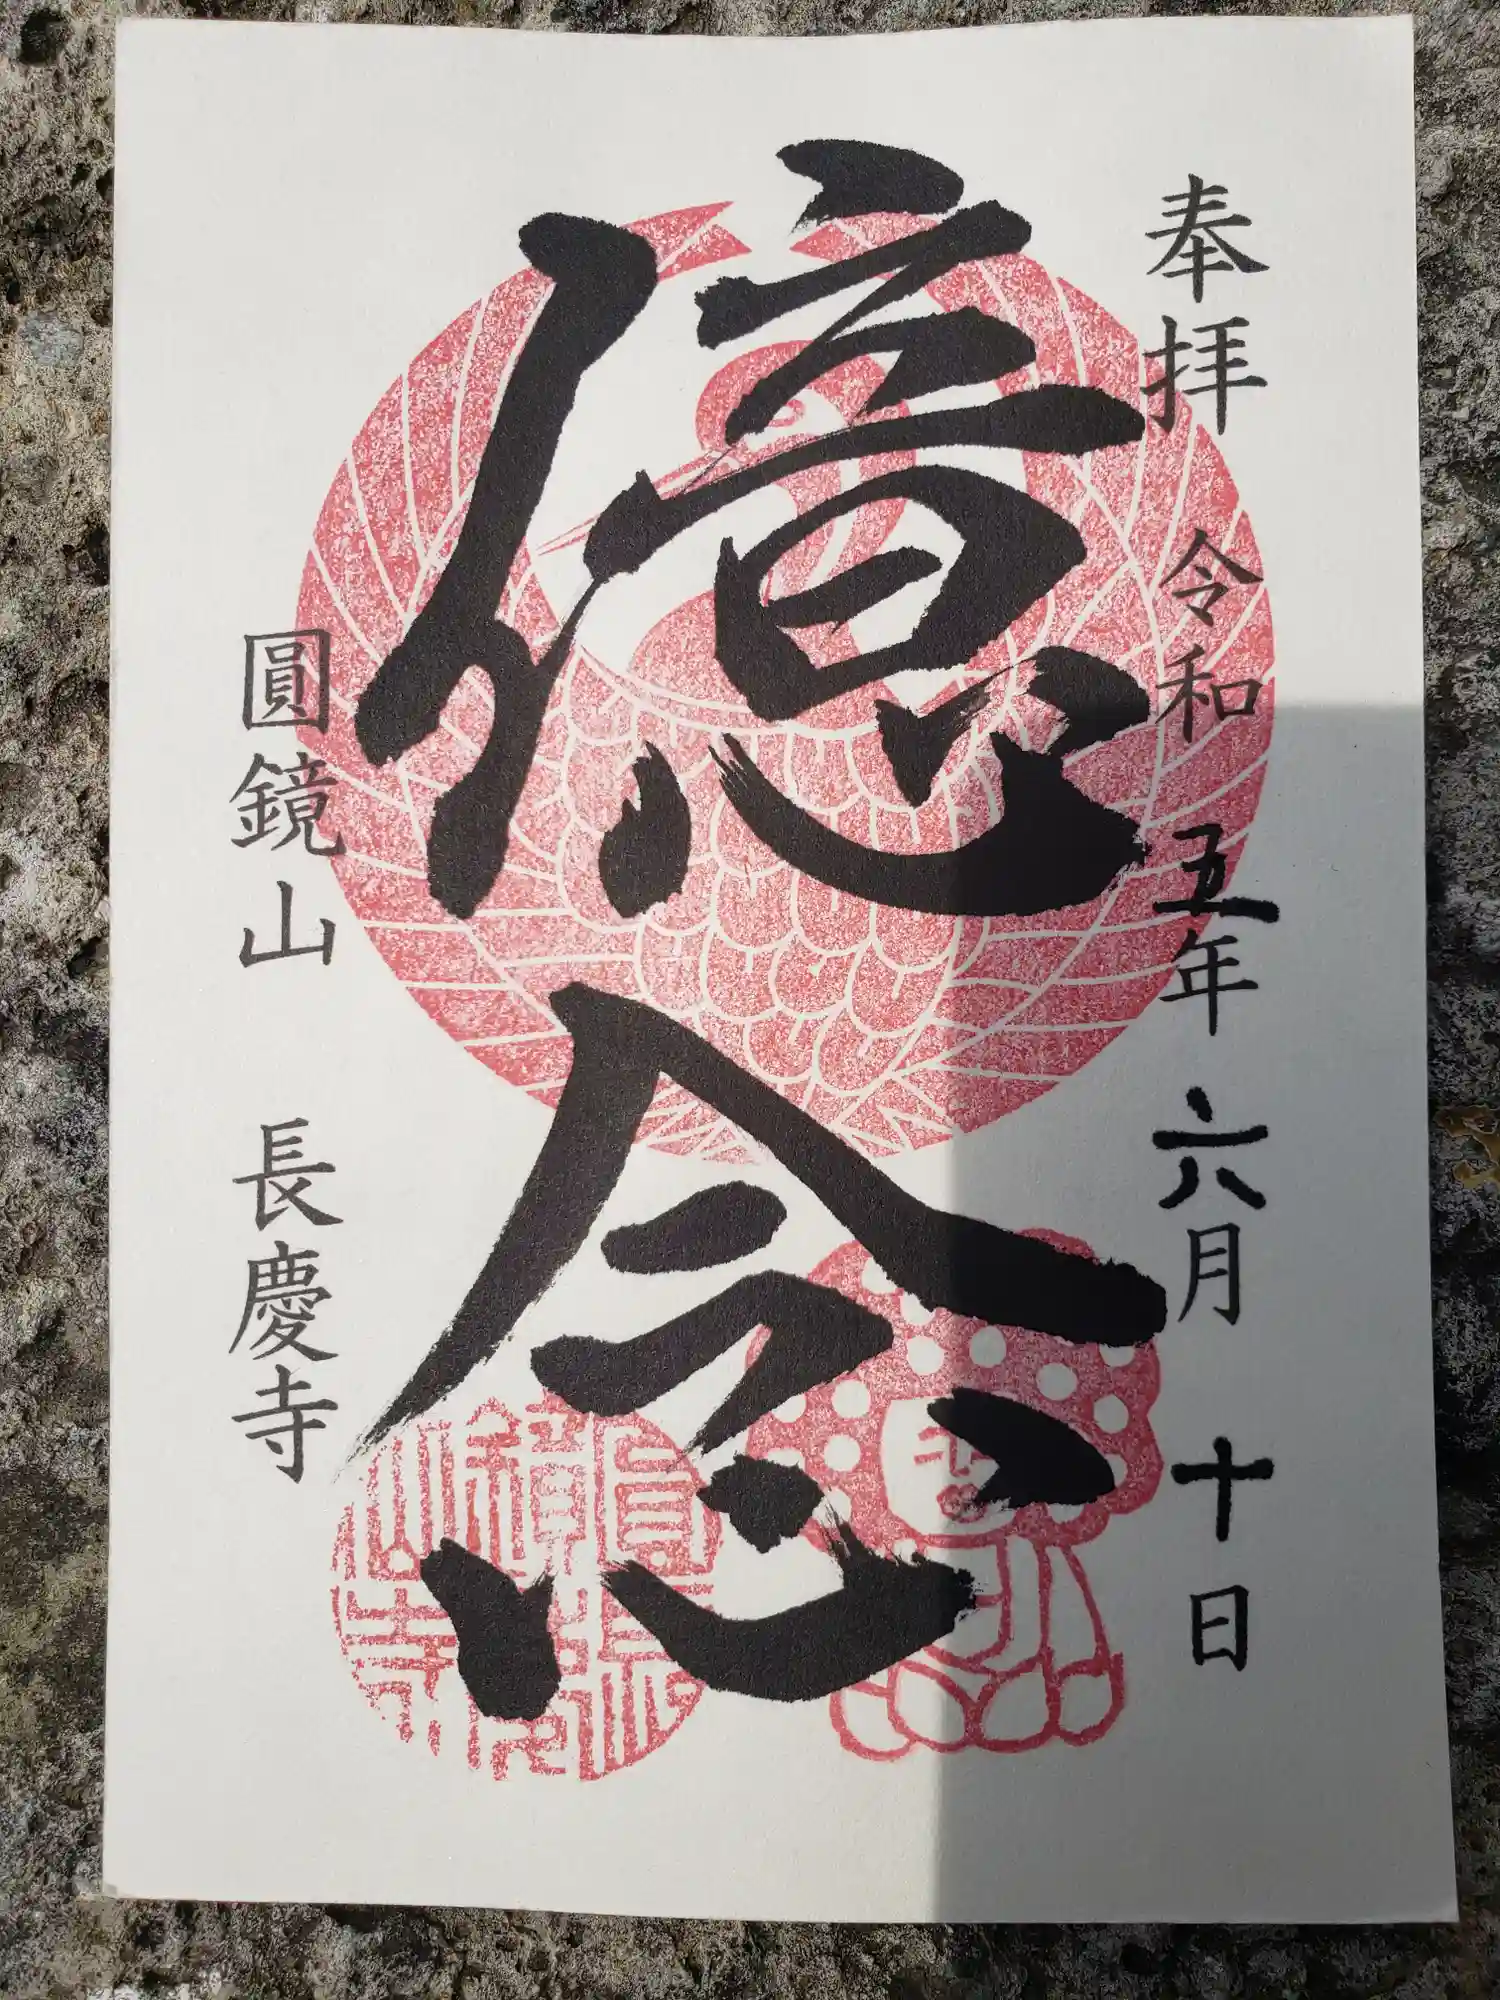 奉拝 令和五年六月十日
億念
圓鏡山 長慶寺
圓鏡山
長慶寺